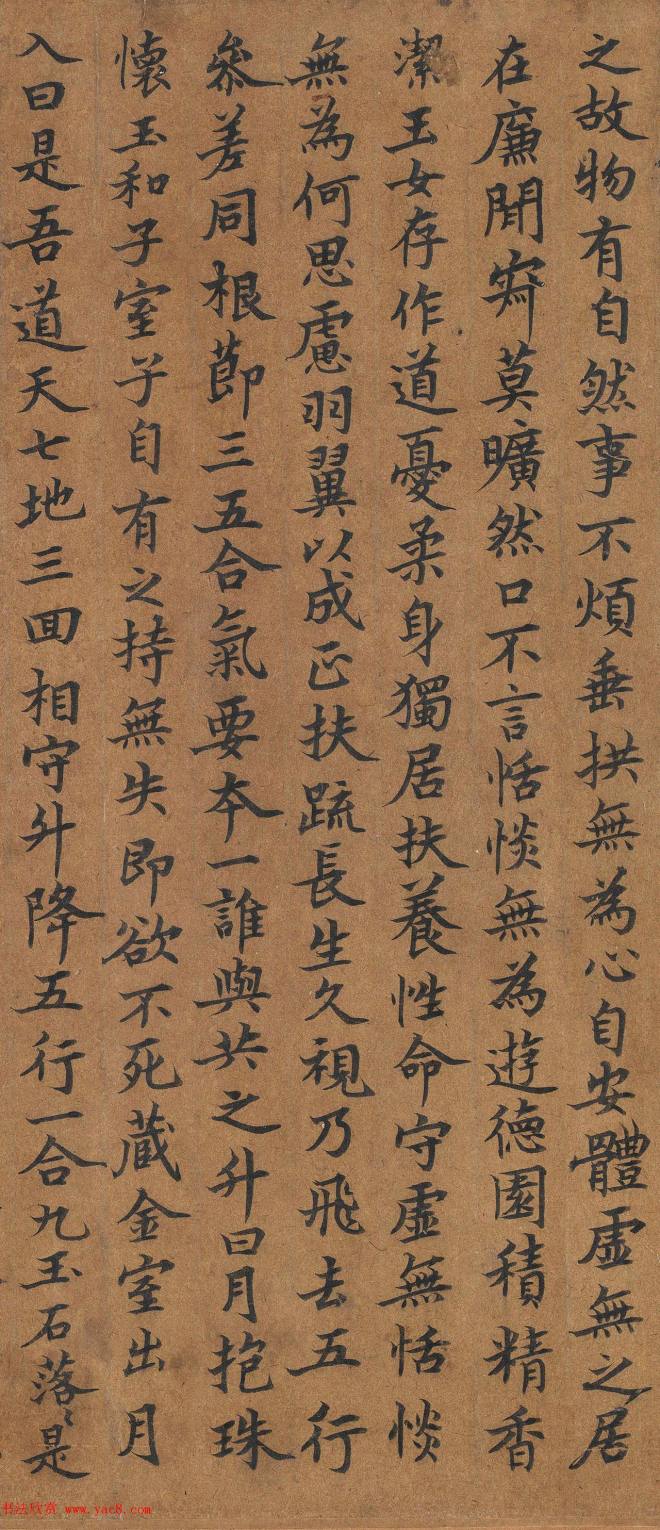 之故物有自然事不煩垂拱無為心自安體虛無之居
在廉閒寂莫曠然口不言恬惔無為遊德園積精香
潔玉女存作道憂柔身獨居扶養性命守虛無恬惔
無為何思慮羽翼以成正扶疏長生久視乃飛去五行
參差同根節三五合氣要本一誰與共之升日月抱珠
懷玉和子室子自有之持無失即欲不死藏金室出月
入日是吾道天七地三回相守升降五行一合九玉石落〻是
书法欣赏 www.yac8.com